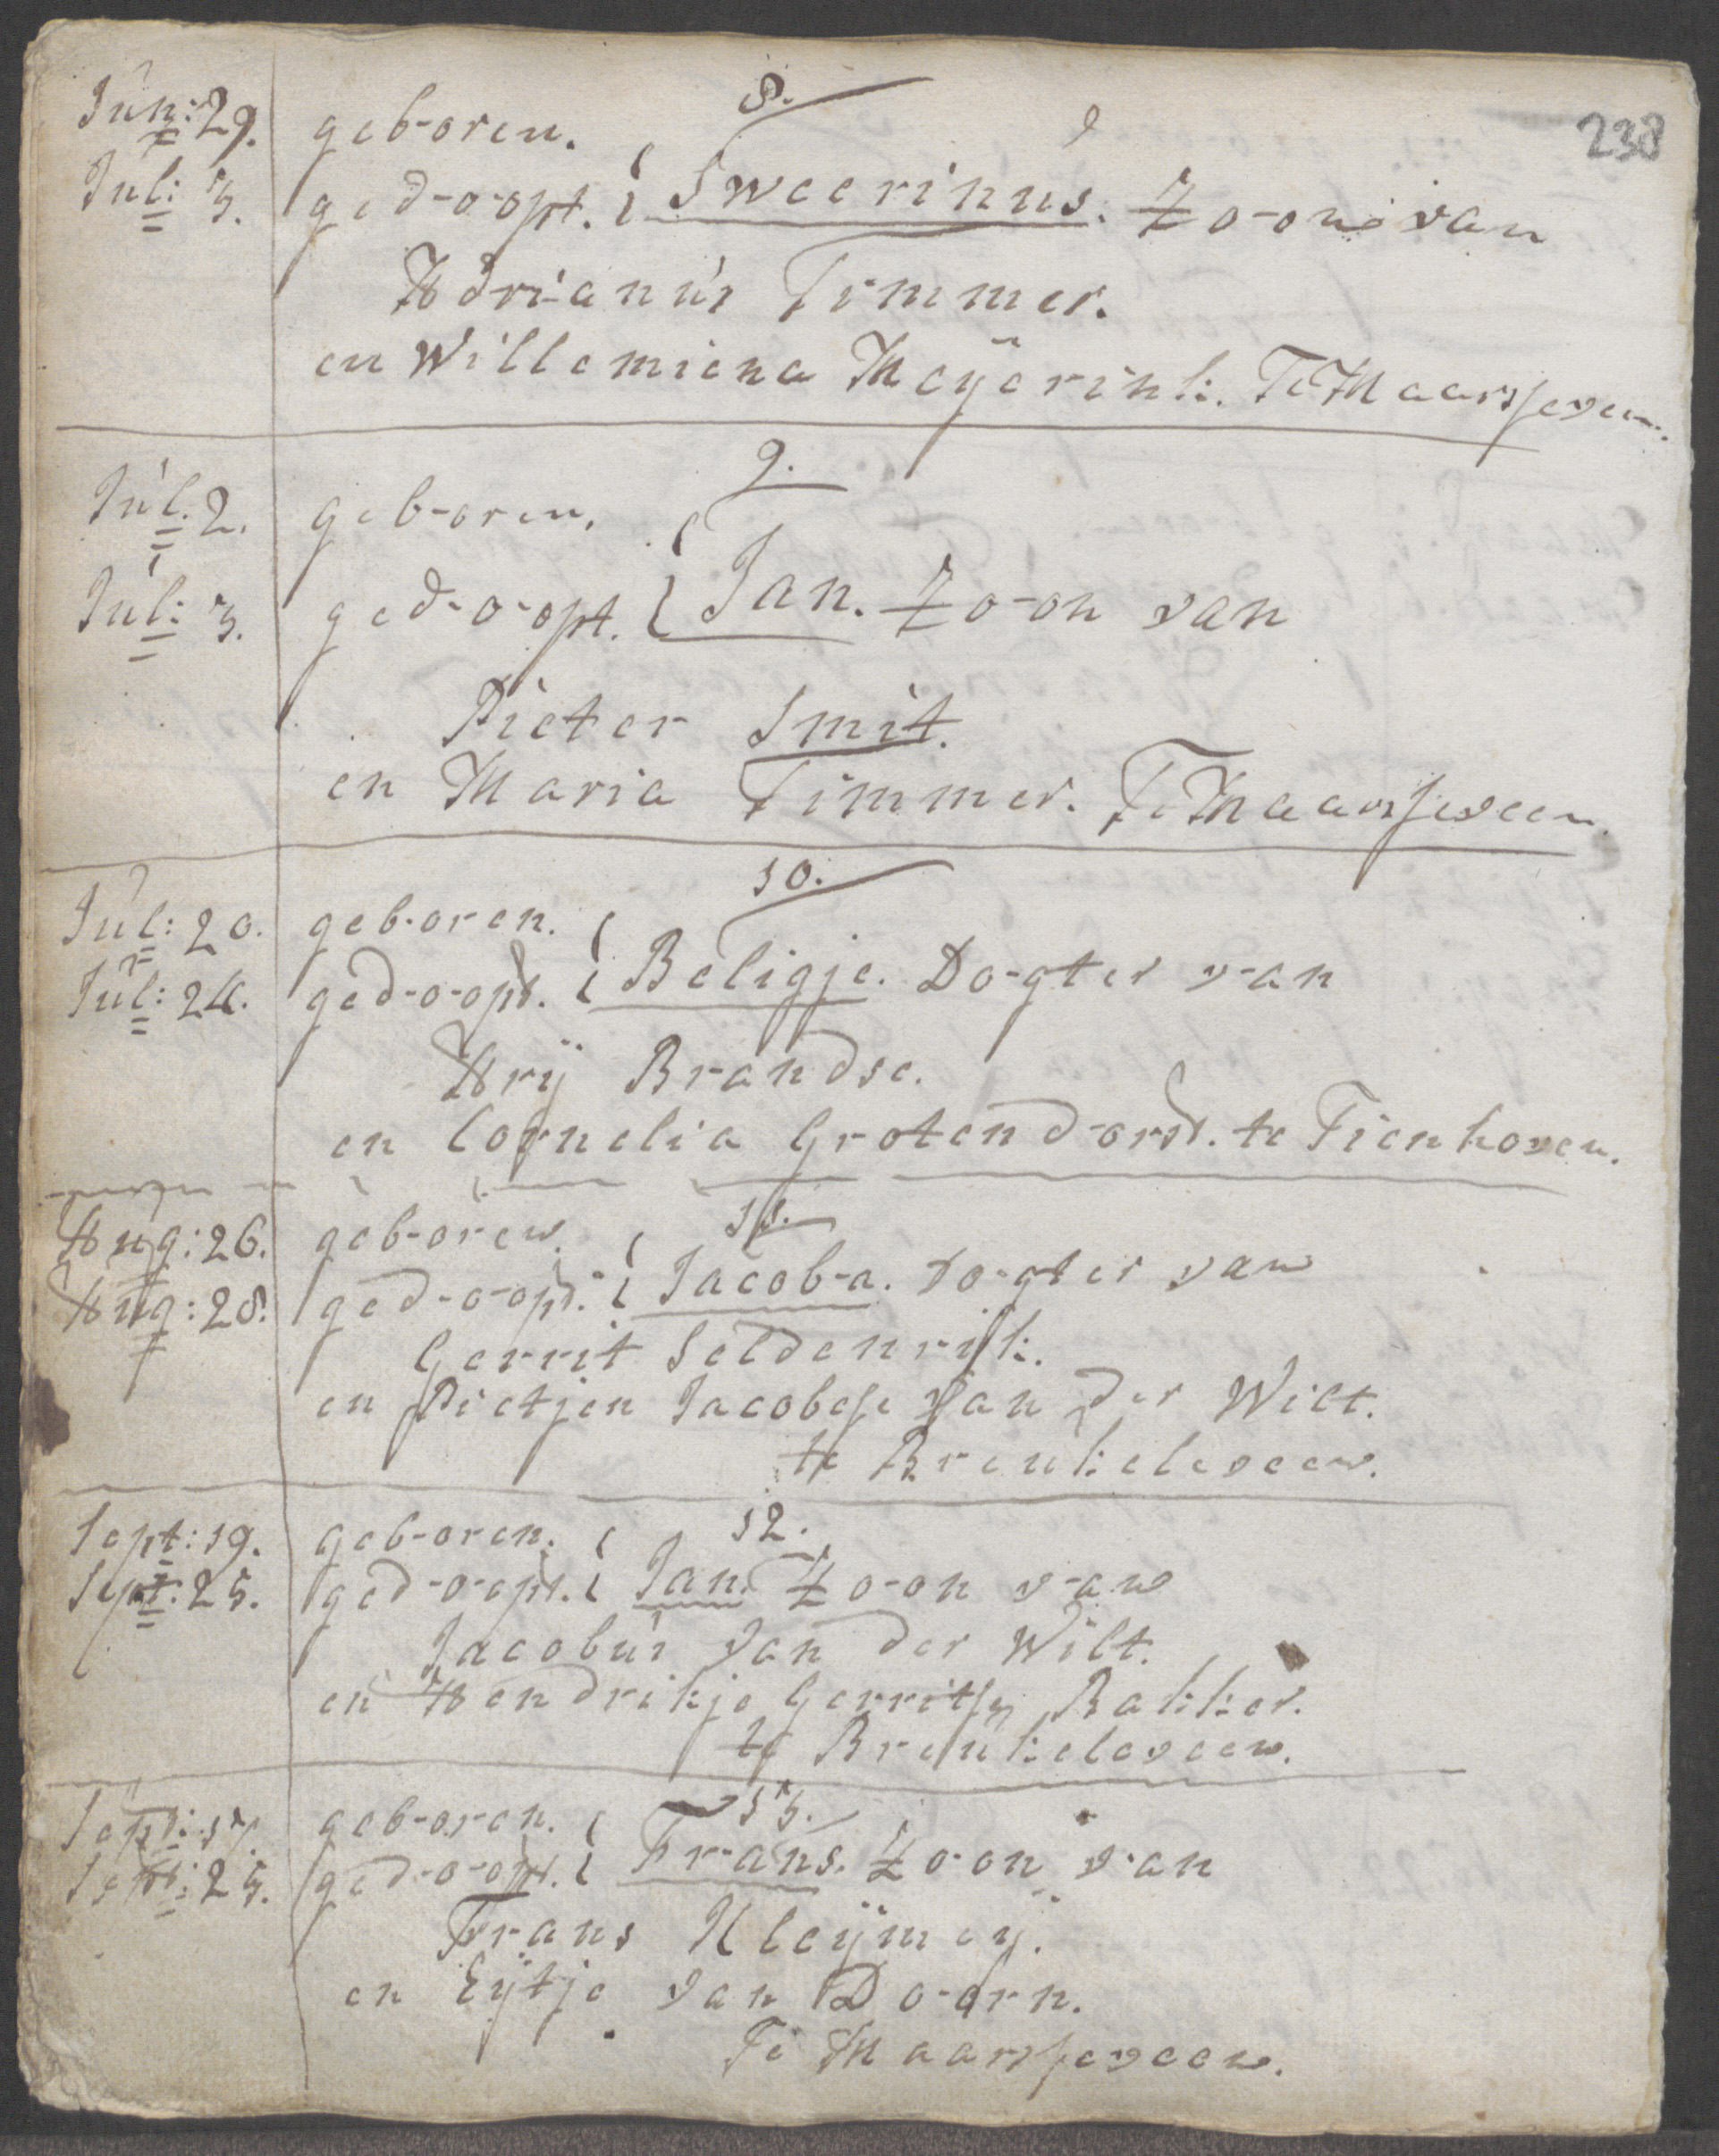 238
8.
Jun: 29. geboren.
Jul: 3. gedoopt. Sweerinus. Zoon van
Adrianus Timmer.
en Willemiena Meÿerink. Te Maarsseveen.
9.
Jul. 2. geboren.
Jul: 3. gedoopt. Jan. Zoon van
Pieter Smit.
en Maria Timmer. Te Maarsseveen.
10.
Jul: 20. geboren.
Jul: 24. gedoopt. Beligje. Dogter van
Arÿ Brandse.
en Cornelia Grotendorst. te Tienhoven.
11.
Aug: 26. geboren.
Aug: 28. gedoopt. Jacoba. Dogter van
Gerrit Seldenrik.
en Pietjen Jacobesse van der Wilt.
te Breukeleveen.
12.
Sept: 19. geboren.
Sept: 25. gedoopt. Jan. Zoon van
Jacobus van der Wilt.
en Hendrikje Gerritse Bakker.
te Breukeleveen.
13.
Sept: 17. geboren.
Sept: 25. gedoopt. Frans. Zoon van
Frans Kleÿmeÿ.
en Eÿtje van Doorn.
Te Maarsseveen.